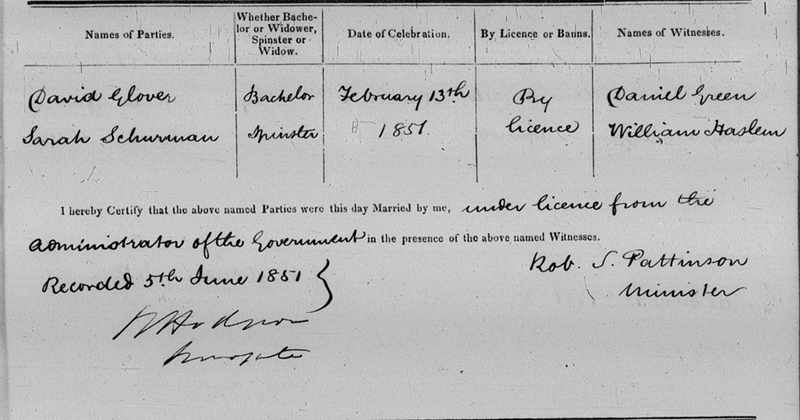 Names of Parties.
Whether Bache-
lor or Widower,
Spinster or
Widow.
Date of Celebration.
By Licence or Banns.
Names of Witnesses.
David Glover Bachelor February 13th By Daniel Green
Sarah Schurman Spinster 1851. licence William Haslem
I hereby Certify that the above named Parties were this day Married by me, under licence from the
administrator of the Government in the presence of the above named Witnesses.
Recorded 5th June 1851
Rob. S. Pattinson
Minister
Hodgson